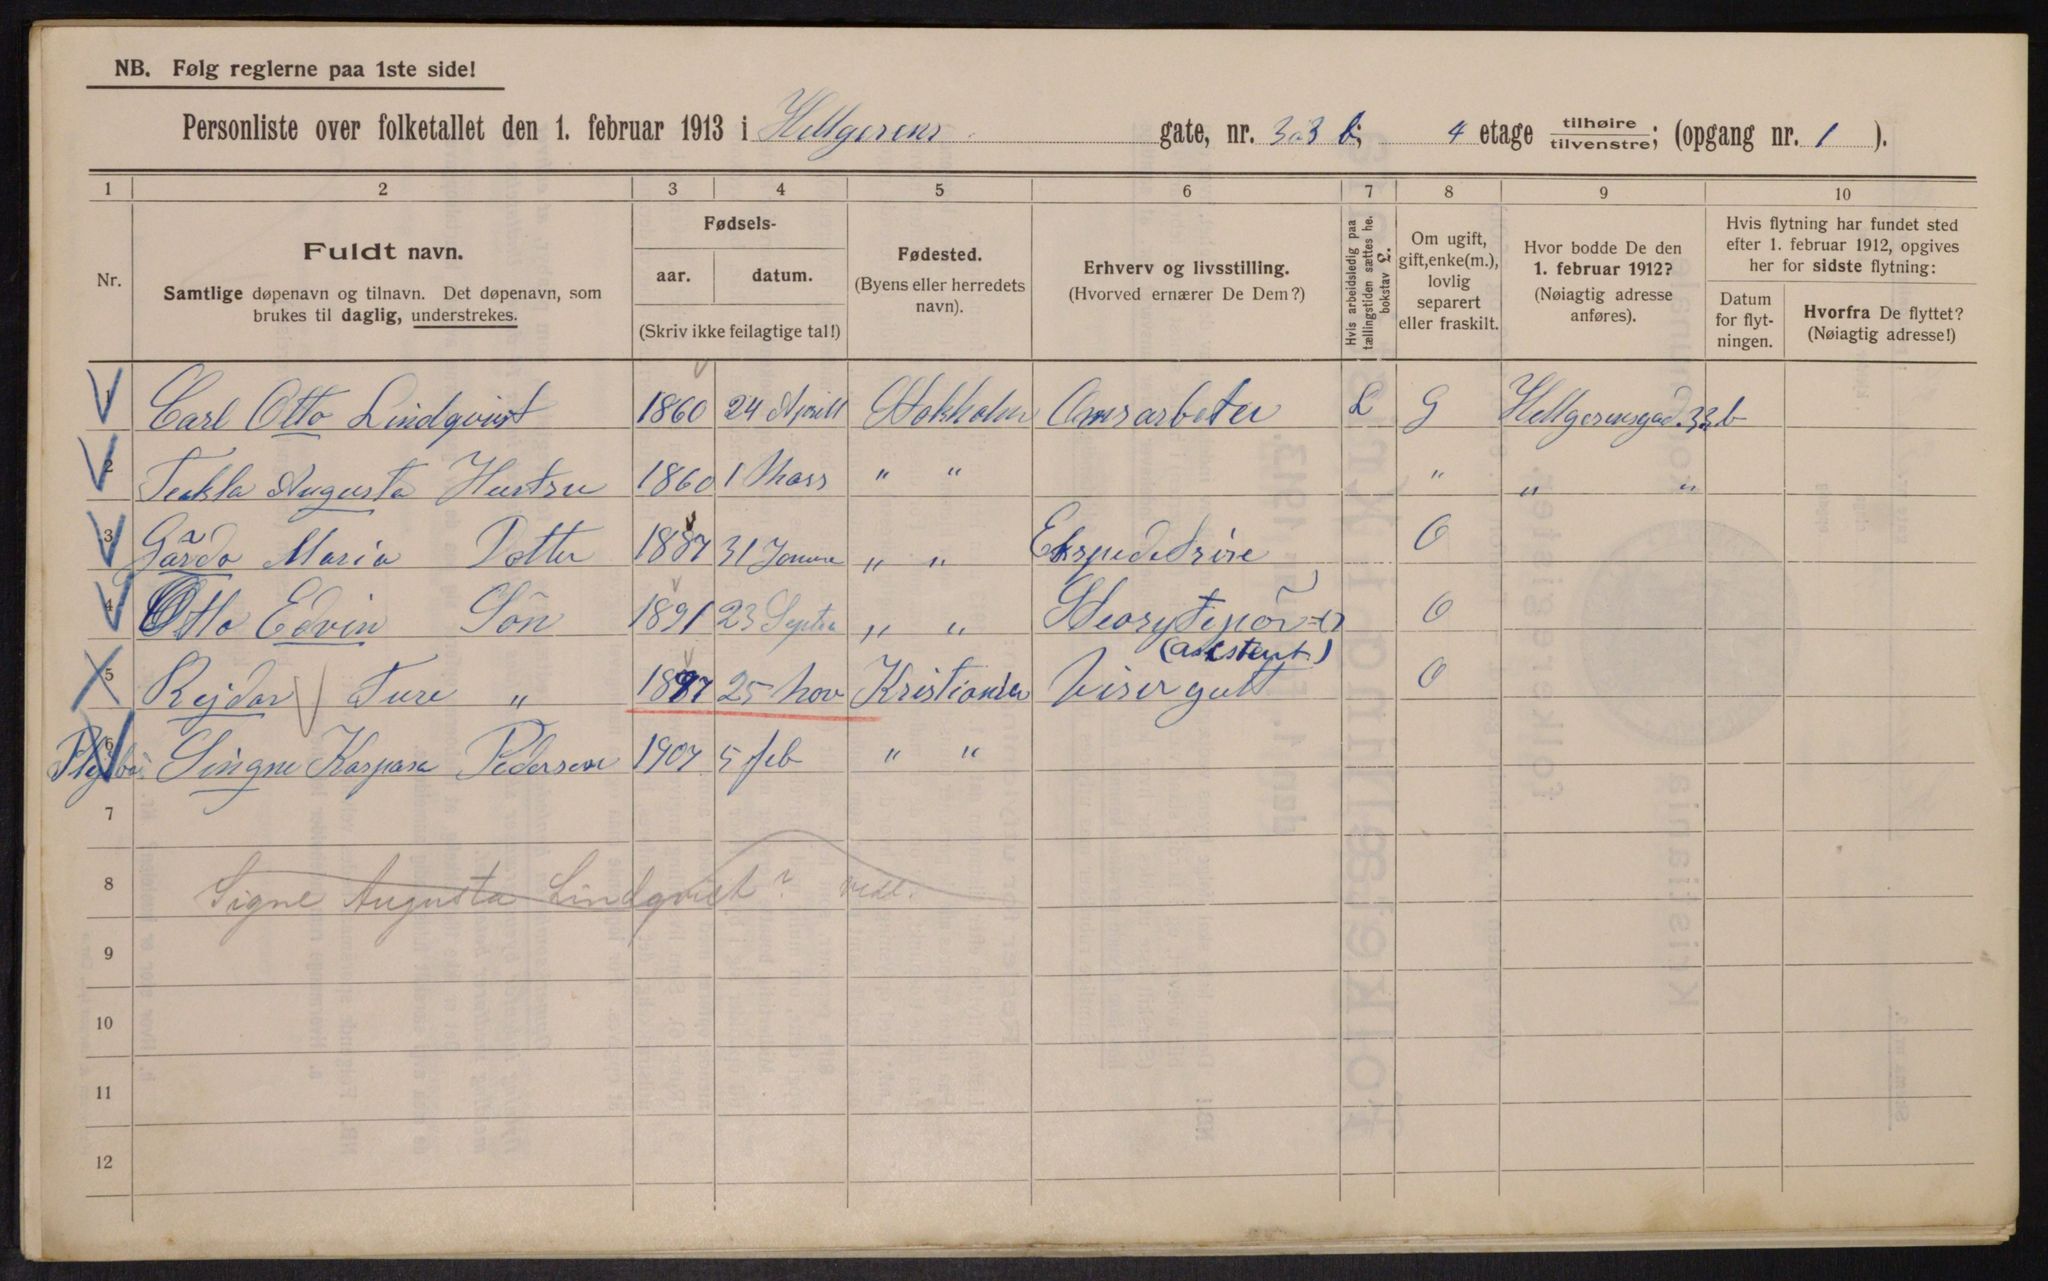 NB. Følg reglerne paa 1ste side!
Personliste over folketallet den 1. februar 1913 i Hellgesens gate, nr. 33 b; 4 etage tilhøire/tilvenstre; (opgang nr. 1 ).
1 2 3 4 5 6 7 8 9 10
Nr.
Fuldt navn.
Samtlige døpenavn og tilnavn. Det døpenavn, som
brukes til daglig, understrekes.
Fødsels-
aar. datum.
(Skriv ikke feilagtige tal!)
Fødested.
(Byens eller herredets
navn).
Erhverv og livsstilling.
(Hvorved ernærer De Dem?)
Hvis arbeidsledig paa
tællingstiden sættes her
bokstav L.
Om ugift,
gift, enke(m.),
lovlig
separert
eller fraskilt.
Hvor bodde De den
1. februar 1912?
(Nøiagtig adresse
anføres).
Hvis flytning har fundet sted
efter 1. februar 1912, opgives
her for sidste flytning:
Datum
for flyt-
ningen.
Hvorfra De flyttet?
(Nøiagtig adresse!)
1 Carl Otto Lindqvist 1860 24 Aprill Stokholm L G
2 Tekla Augusta Hustru 1860 1 Mars " " " " "
3 Gärda Maria Dotter 1887 31 " " Ekspeditrise O
4 Otto Edvin Sön 1891 23 Septe " " O
(asistent)
5 Rejdar Ture " 1897 25 nov Kristiania Visergutt O
6 Singne Kaspara Pedersen 1907 5 feb " "
7
8 Signe Augusta Lindqvist?
9
10
11
12